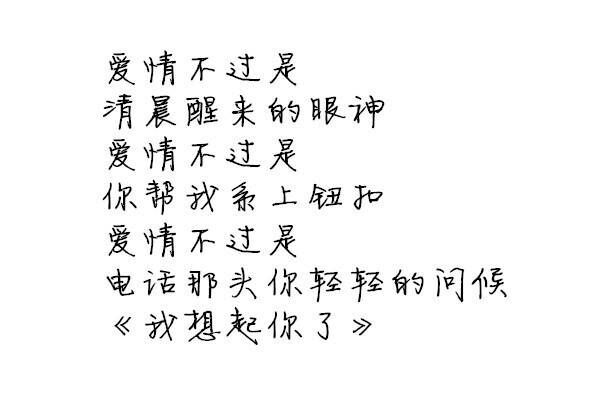 爱情不过是
清晨醒来的眼神
爱情不过是
你帮我系上钮扣
爱情不过是
电话那头你轻轻的问候
《我想起你了》